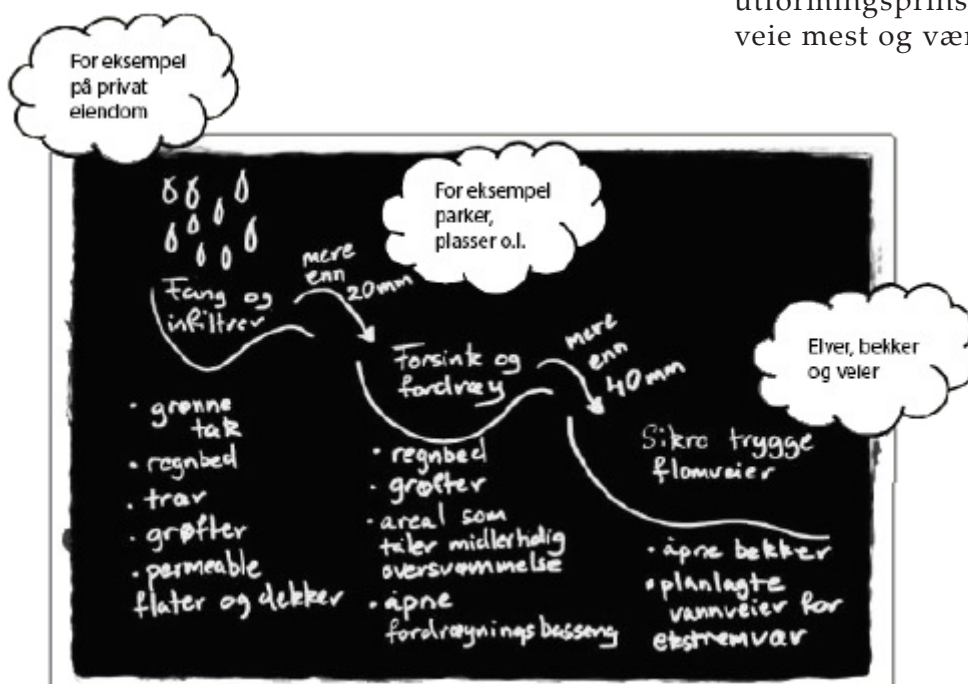 utformingsprins
veie mest og vær
For eksempel
på privat
eiendom
For eksempel
parker,
plasser o.l.
Elver, bekker
og veier
Fang og
infiltrer
mere
enn
20mm
Forsink og
fordrøy
mere
enn
40mm
Sikre trygge
flomveier
• grønne
tak
• regnbed
• trær
• grøfter
• permeable
flater og dekker
• regnbed
• grøfter
• areal som
tåler midlertidig
oversvømmelse
• åpne
fordrøyningsbasseng
• åpne bekker
• planlagte
vannveier for
ekstremvær